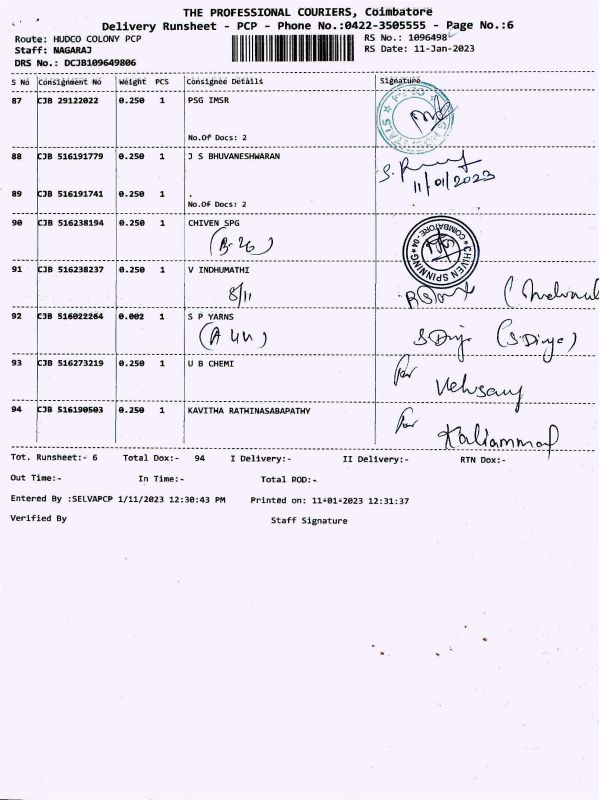 THE PROFESSIONAL COURIERS, Coimbatore
Delivery Runsheet - PCP - Phone No.:0422-3505555 - Page No.:6
Route: HUDCO COLONY PCP RS No.: 1096498
Staff: NAGARAJ RS Date: 11-Jan-2023
DRS No.: DCJB109649806
S No Consignment No Weight PCS Consignee Details Signature
87 CJB 29122022 0.250 1 PSG IMSR
No.Of Docs: 2
88 CJB 516191779 0.250 1 J S BHUVANESHWARAN
11/01/2023
89 CJB 516191741 0.250 1 .
No.Of Docs: 2
90 CJB 516238194 0.250 1 CHIVEN SPG
(B-26)
CHIVEN SPINNING * COIMBATORE - 04 *
91 CJB 516238237 0.250 1 V INDHUMATHI
8/11
92 CJB 516022264 0.002 1 S P YARNS
(A 44) S Divya (S.Divya)
93 CJB 516273219 0.250 1 U B CHEMI
for
94 CJB 516190503 0.250 1 KAVITHA RATHINASABAPATHY
for
Kaliammal
Tot. Runsheet:- 6 Total Dox:- 94 I Delivery:- II Delivery:- RTN Dox:-
Out Time:- In Time:- Total POD:-
Entered By :SELVAPCP 1/11/2023 12:30:43 PM Printed on: 11-01-2023 12:31:37
Verified By Staff Signature